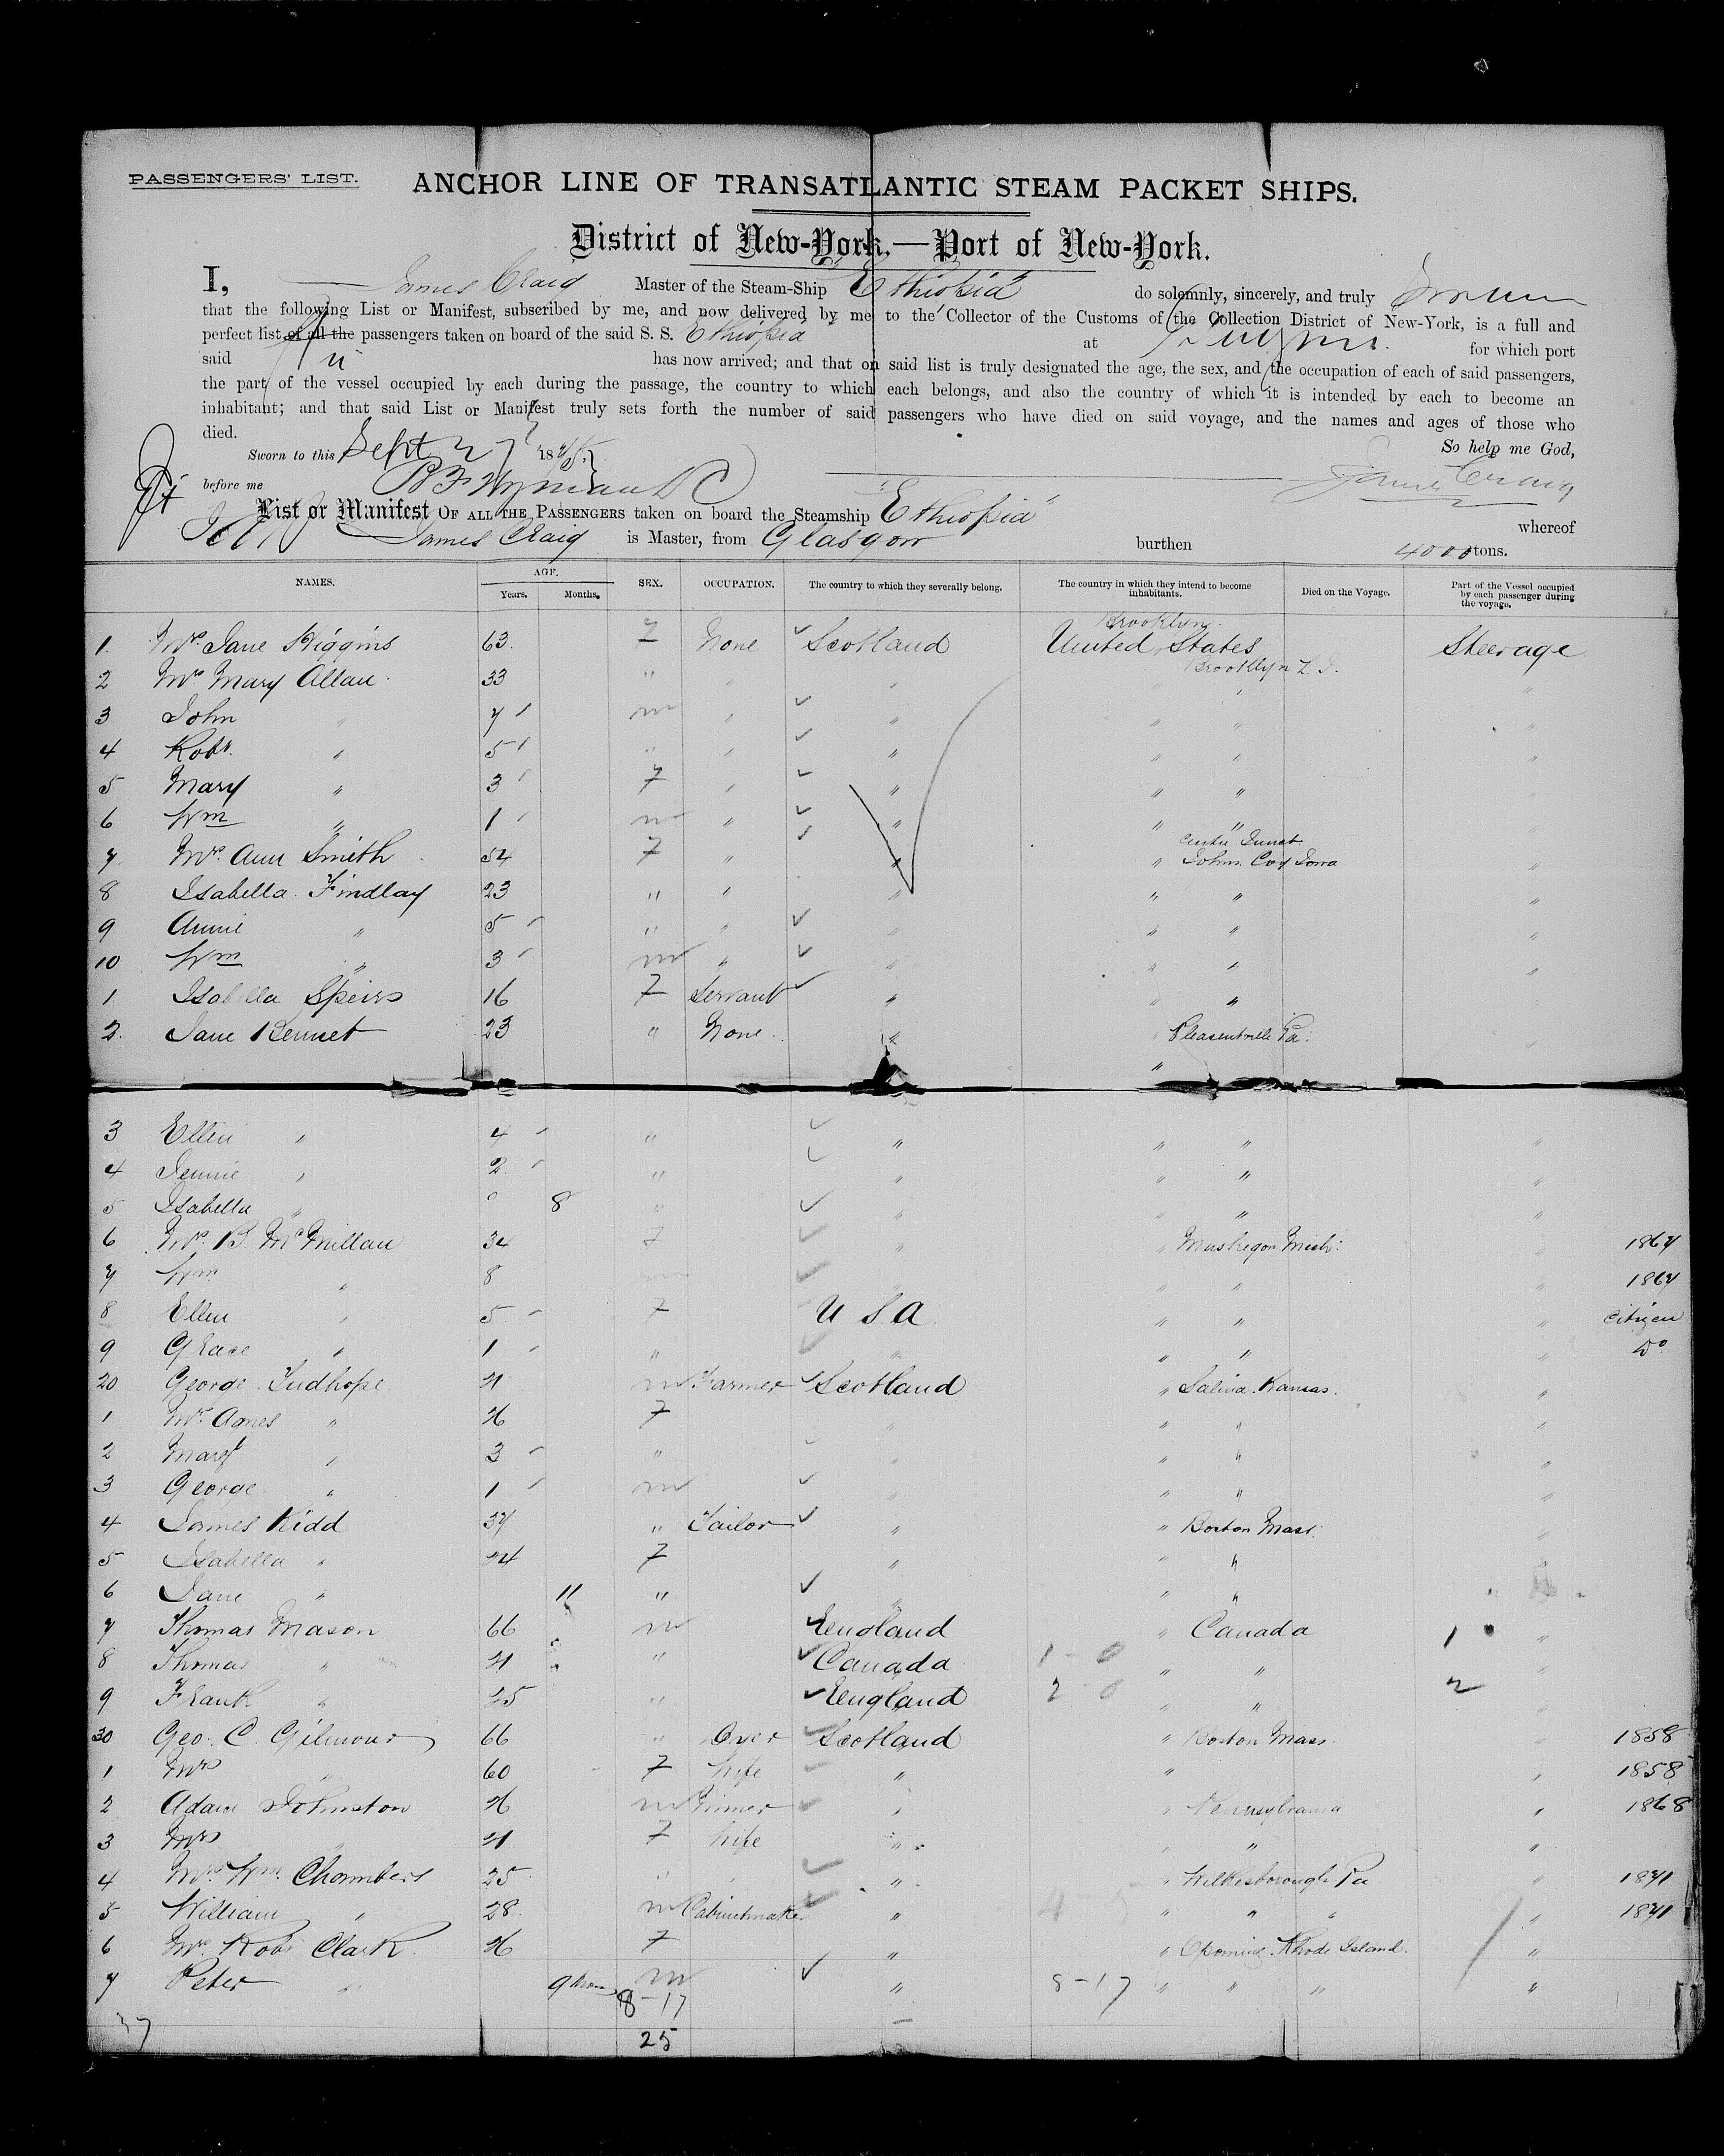 PASSENGERS' LIST.
ANCHOR LINE OF TRANSATLANTIC STEAM PACKET SHIPS.
District of New-York.—Port of New-York.
I, James Craig Master of the Steam-Ship "Ethiopia" do solemnly, sincerely, and truly
that the following List or Manifest, subscribed by me, and now delivered by me to the Collector of the Customs of the Collection District of New-York, is a full and
perfect list of all the passengers taken on board of the said S. S. Ethiopia at for which port
said has now arrived; and that on said list is truly designated the age, the sex, and the occupation of each of said passengers,
the part of the vessel occupied by each during the passage, the country to which each belongs, and also the country of which it is intended by each to become an
inhabitant; and that said List or Manifest truly sets forth the number of said passengers who have died on said voyage, and the names and ages of those who
died.
So help me God,
Sworn to this Sept 27 18
before me James Craig
List or Manifest OF ALL THE PASSENGERS taken on board the Steamship "Ethiopia" whereof
James Craig is Master, from Glasgow burthen 4000 tons.
NAMES. AGE. Years. Months. SEX. OCCUPATION. The country to which they severally belong. The country in which they intend to become inhabitants. Died on the Voyage. Part of the Vessel occupied by each passenger during the voyage.
Brooklyn
1. Mrs Jane Higgins 63. F None Scotland United States Steerage
2 Mrs Mary Allan 33 " " " Brooklyn L.I. "
3 John " 7 m " " " " "
4 Robt. " 5 " " " " " "
5 Mary " 3 F " " " "
6 Wm " 1 m " " " "
7 Mrs. Ann Smith 54 F " " " Johns. Coy Iowa "
8 Isabella Findlay 23 " " " " " "
9 Annie " 5 " " " " " "
10 Wm " 3 m " " " " "
1. Isabella Speirs 16 F Servant " " "
2. Jane Bennet 23 " None " " Pleasentville Pa.
3 Ellen " 4 " " " " "
4 Jennie " 2 " " " " "
5 Isabella " 8 " " " " "
6 Mrs. B. McMillan 34 F " " Muskegon Mich: " 1867
7 Wm " 8 m " " " " 1867
8 Ellen " 5 F U S A " " " Citizen
9 Grace " 1 " " " " " Do
20 George Tudhope 21 m Farmer Scotland " Salina Kansas. "
1 Mrs. Agnes " 26 F " " " "
2 Margt " 3 " " " " "
3 George " 1 m " " " "
4 James Kidd 37 " Tailor " " Boston Mass. "
5 Isabella " 24 F " " "
6 Jane " 11 " " " "
7 Thomas Mason 66 m England " Canada 1 "
8 Thomas " 21 " Canada 1-0 " "
9 Frank " 25 " England 2-0 " " 2
30 Geo. C. Gilmour 66 " Scotland " Boston Mass 1858
1 Mrs " 60 F Wife " " " 1858
2 Adam Johnston 26 m " " Pennsylvania " 1868
3 Mrs " 21 F Wife " " " "
4 Mrs Wm. Chambers 25 " " " Pa " 1871
5 William " 28 m Cabinetmaker " " " " " 1871
6 Mrs. Robt Clark 26 F " " Rhode Island. "
7 Peter " 9 mos m " 8-17 " " " "
37 8-17
25